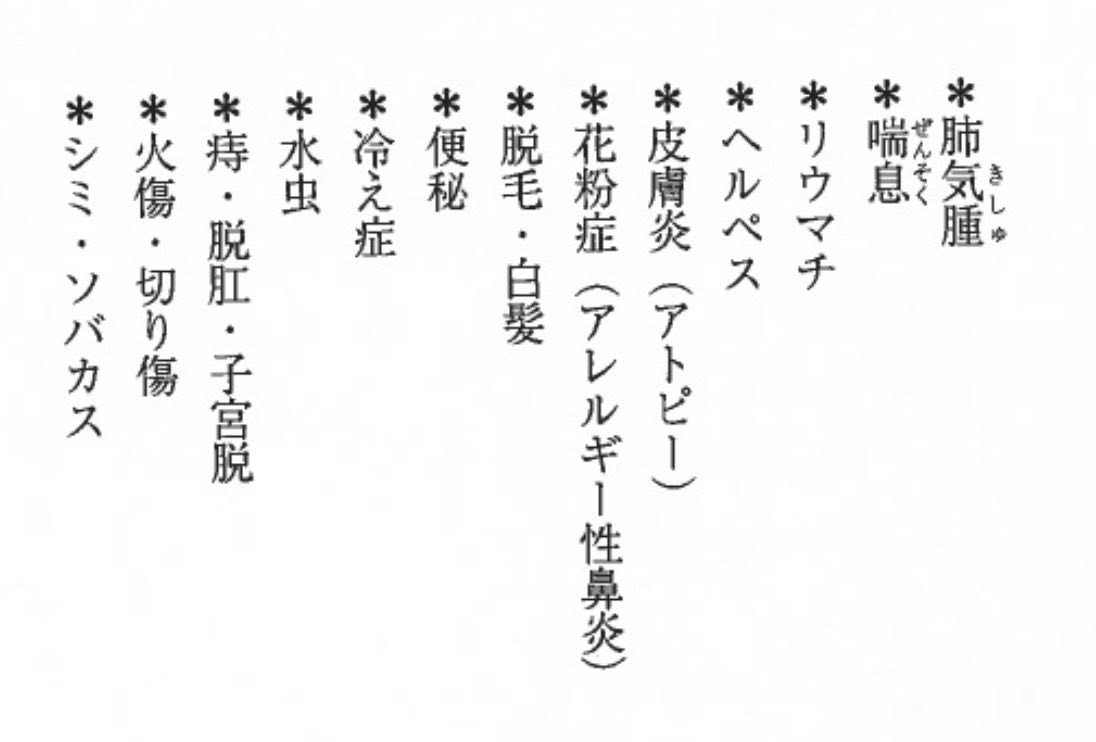 ＊肺気腫
きしゅ
＊喘息
ぜんそく
＊リウマチ
＊ヘルペス
＊皮膚炎（アトピー）
＊花粉症（アレルギー性鼻炎）
＊脱毛・白髪
＊便秘
＊冷え症
＊水虫
＊痔・脱肛・子宮脱
＊火傷・切り傷
＊シミ・ソバカス